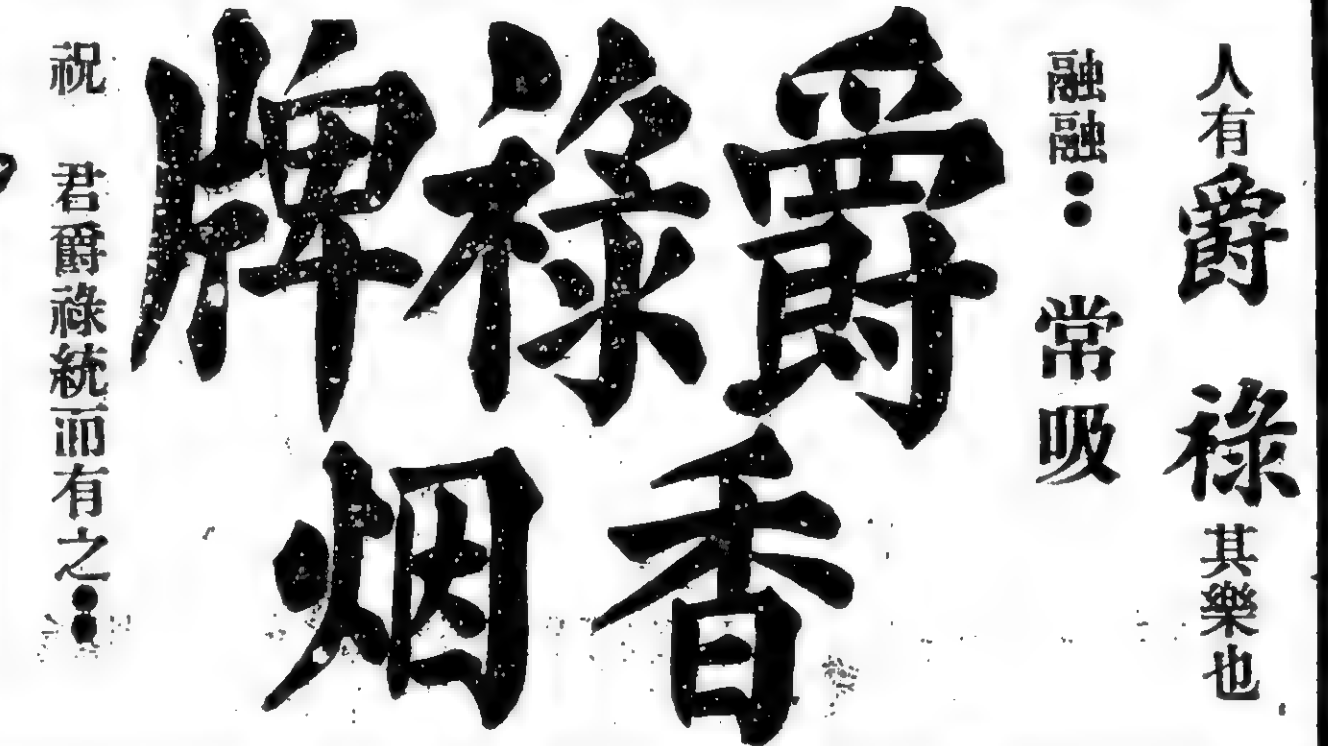 人有爵祿其樂也
融融：常吸
爵祿牌
香烟
祝 君爵祿統而有之：